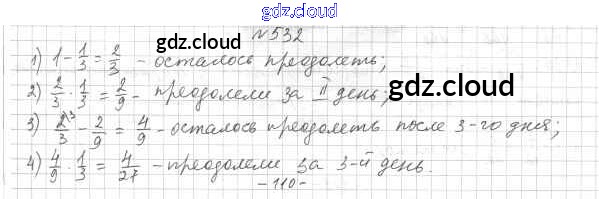 gdz.cloud
№532
gdz.cloud
1) 1 - 1/3 = 2/3 - осталось преодолеть;
2) 2/3 · 1/3 = 2/9 - преодолели за II день;
gdz.cloud
gdz.cloud
3) 2/3 ³ - 2/9 = 4/9 - осталось преодолеть после 3-го дня;
4) 4/9 · 1/3 = 4/27 - преодолели за 3-й день.
- 110 -